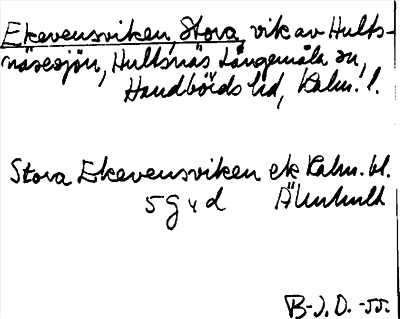 Ekevensviken, Stora, vik av Hults-
näsesjön, Hultsnäs Långemåla sn,
Handbörds hd, Kalm. l.
Stora Ekevensviken ek Kalm. bl.
5 g v d Älmhult
B-J. D. -55.